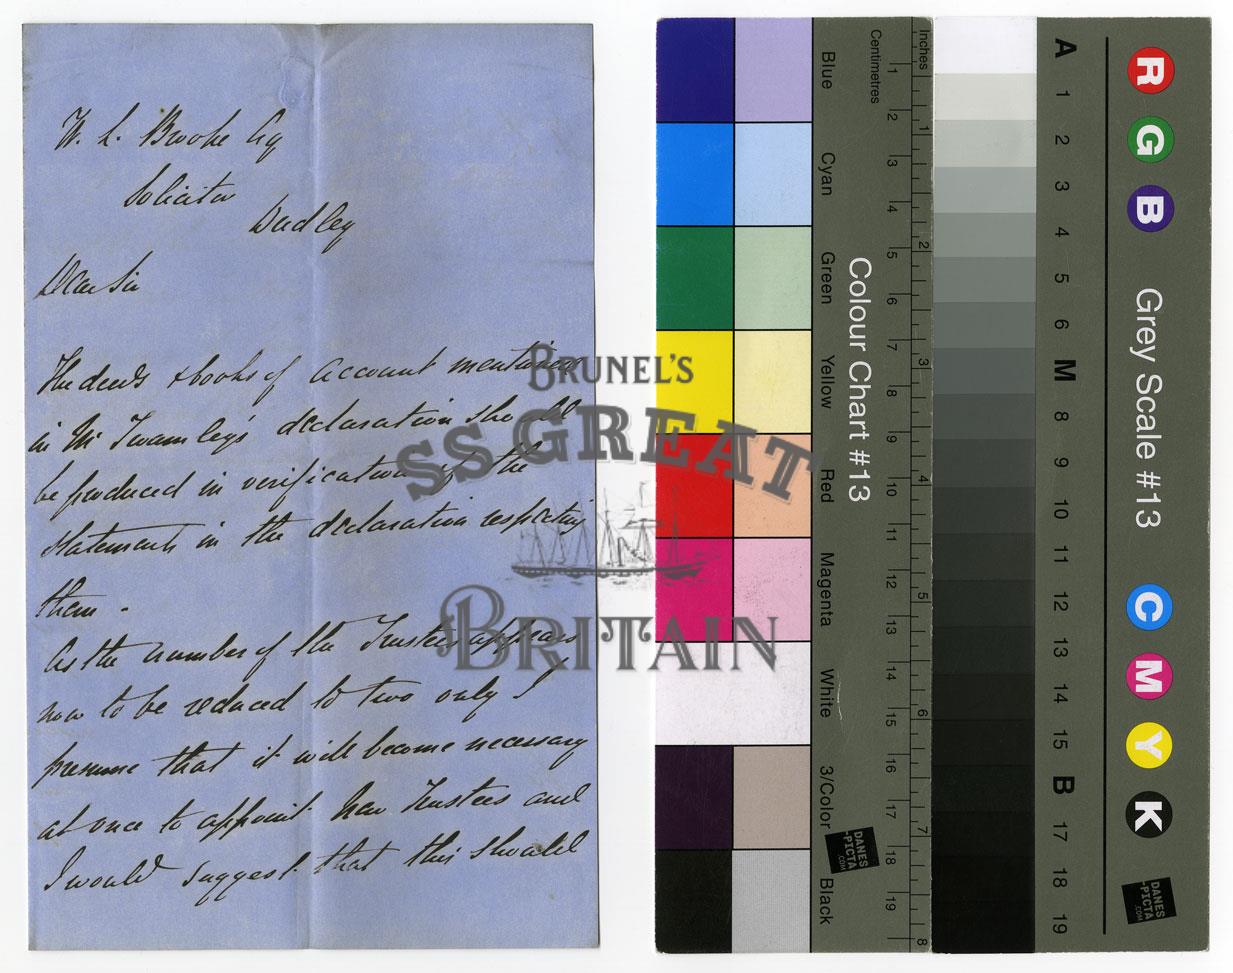 W. L. Brooke Esq
Solicitor
Dudley
Dear Sir
The deeds & books of account mentioned
in Mr Twamley's declaration should
be produced in verification of the
statements in the declaration respecting
them.
As the number of the Trustees appears
now to be reduced to two only I
presume that it will become necessary
at once to appoint New Trustees and
I would suggest that this should
BRUNEL'S
SS GREAT
BRITAIN
Blue
Cyan
Green
Yellow
Red
Magenta
White
3/Color
Black
Colour Chart #13
Centimetres
1
2
3
4
5
6
7
8
9
10
11
12
13
14
15
16
17
18
19
Inches
1
2
3
4
5
6
7
8
DANES
-PICTA
.COM
A
1
2
3
4
5
6
M
8
9
10
11
12
13
14
15
B
17
18
19
R
G
B
Grey Scale #13
C
M
Y
K
DANES
-PICTA
.COM